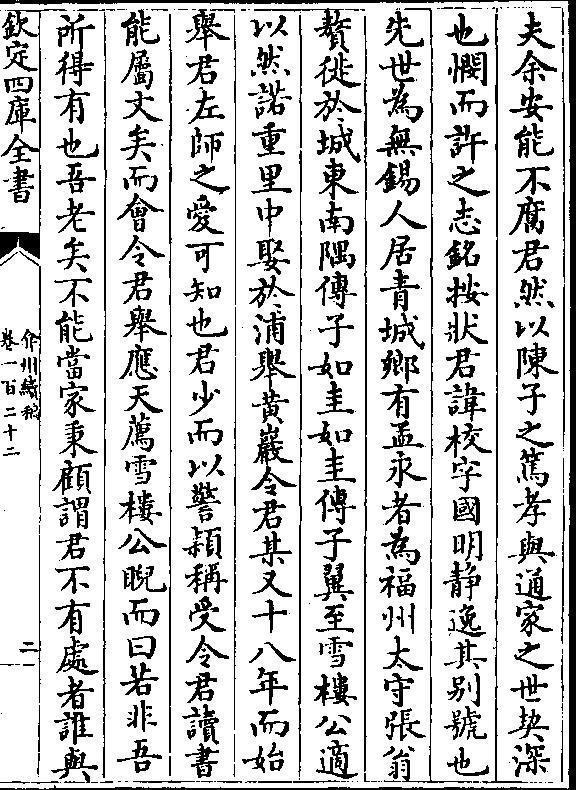 夫余安能不腐君然以陳子之篤孝與通家之世契深
也憫而許之志銘按狀君諱校字國明静逸其别號也
先世為無錫人居青城鄉有孟永者為福州太守張翁
贅徙於城東南隅傳子如圭如圭傳子翼至雪樓公適
以然諾重里中娶於浦舉黄巖令君某又十八年而始
舉君左師之愛可知也君少而以警頴稱受令君讀書
能屬文矣而會令君舉應天薦雪樓公睨而曰若非吾
所得有也吾老矣不能當家秉顧謂君不有處者誰與
欽定四庫全書
弇州續稿
卷一百二十二
二